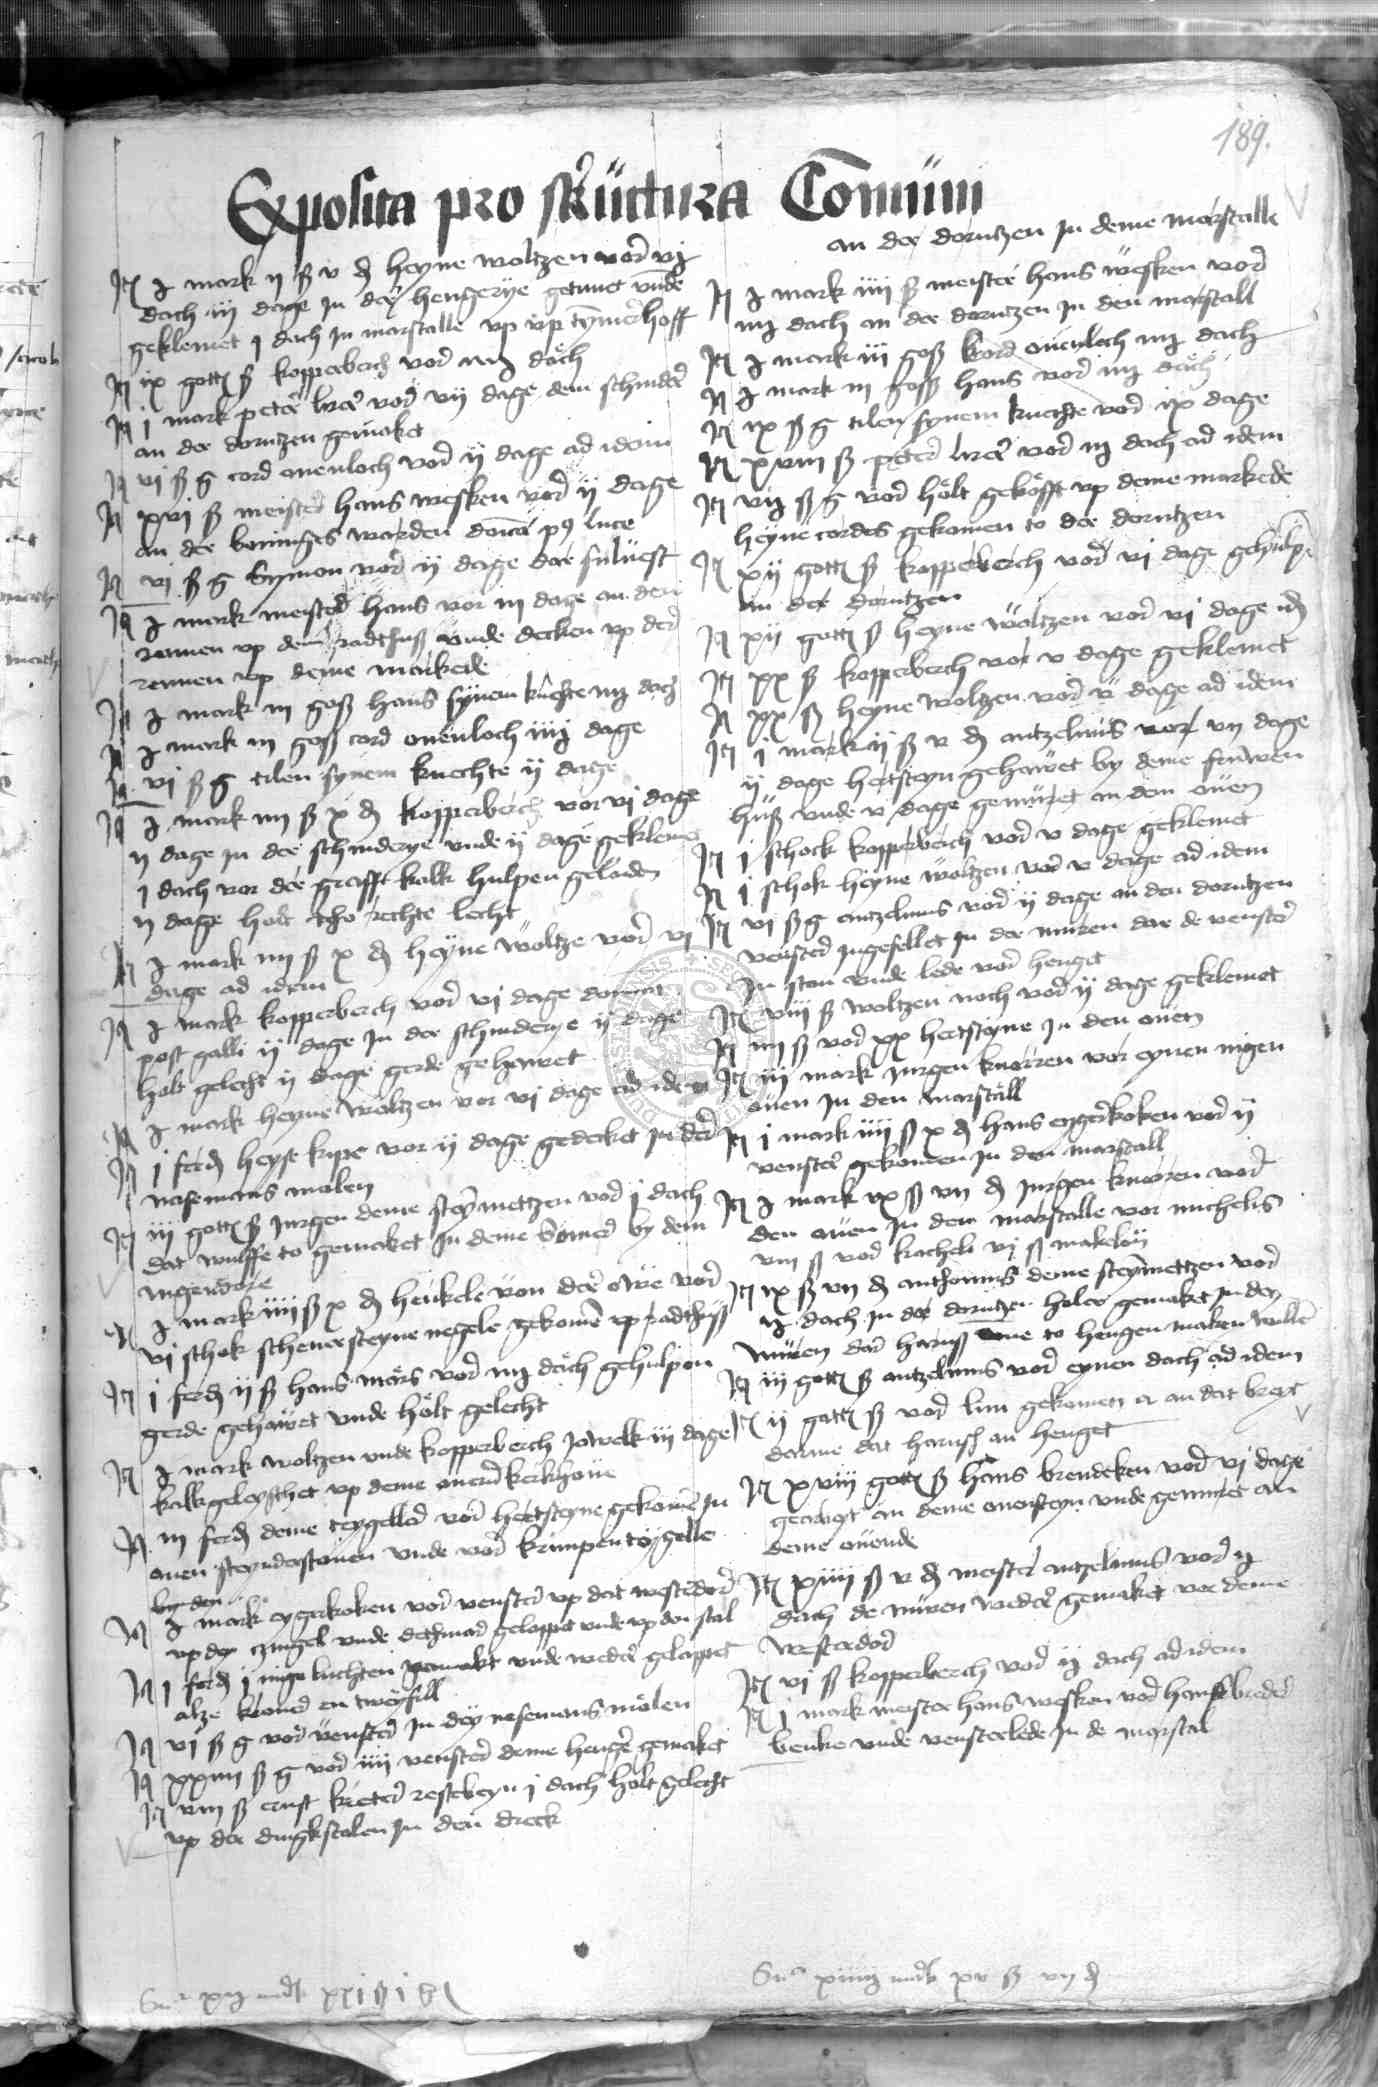 189.
Exposita pro structura Comuni
It I mark ii ß v d heyne woltzen vor vj
dach iij dage in der hengerye getunet vnde
geklemet j dach in marstalle vp vp tymerhoff
It ix gott ß kopperberch vor dach
It j mark peter vor vij dage dem schinder
an der dorntzen gemaket
It vj ß g cord ouenloch vor ij dage ad idem
It xvj ß meister hans wesken vor ij dage
an der boninges worden donca p9 luce
It vj ß g Symon vor ij dage dar suluest
It I mark meister hans vor iij dage an den
rennen vp dem radthuß vnde decken vp der
rennen vp deme markede
It I mark iij goß hans synem knechte iiij dach
It I mark iij goß cord ouenloch iiij dage
It vj ß g tilen synem knechte ij dage
It I mark iiij ß x d kopperberch vor vj dage
ij dage in der schinderye vnde ij dage geklemet
j dach vor der grafft kalk hulpen geladen
ij dage holt tho rechte lecht
It I mark iiij ß x d heyne woltze vor vj
dage ad idem
It I mark kopperberch vor vj dage donnca
post galli ij dage in der schinderye ij dage
holt gelecht ij dage gerde gehawet
It I mark heyne woltzen vor vj dage ad idem
It j ferd heyse kype vor ij dage gedecket in der
nasemans molen
It iij gott ß jurgen deme steymettzen vor j dach
dat wulffe to gemaket in deme Somer by dem
nigendore
It I mark iiij ß x d henkele von der owe vor
vj schok scheuersteyne negele gekomen vp radthuß
It j ferd ij ß hans mars vor iiij dach gehulpen
gerde gehawet vnde holt gelecht
It I mark woltzen vnde kopperberch jowelk iij dage
kalk geleschet vp deme ouern kerkhoue
It iij ferd deme teygeller vor hertsteyne gekomen in
ouen steynderstouen vnde vor krumpen teygelle
by den
It I mark eygerkoken vor venster vp dat westerdor
vp den czingel vnde dethmar gelappet vnde vp den stal
It j ferd j nige luchten gemaket vnde weder gelappet
alze kramer en twey fill
It vj ß g vor venster in dey nasemans molen
It xxiiij ß g vor iiij venster deme henger gemaket
It viij ß ernst kreter restebeyn j dach holt gelecht
vp der dingkstalen in den dreck
Sua xij mark xxj ß j g
an der dorntzen in deme marstalle
It I mark iiij ß meister hans wesken vor
iiij dach an der dorntzen in den marstall
It I mark iij goß kord ouenloch iiij dach
It I mark iij goß hans vor iiij dach
It ix ß g tilen synem knechte vor ix dage
It xviij ß peter vor iij dach ad idem
It vij ß g vor holt gekofft vp deme markede
heyne cordes gekomen to der dorntzen
It xij gott ß kopperberch vor vj dage gehulpen
an der dorntzen
It xij gott ß heyne woltzen vor vj dage id
It xx ß kopperberch vor v dage geklemet
It xx ß heyne woltzen vor v dage ad idem
It j mark ij ß v d antzelmus vor vij dage
ij dage hertsteyn gehawet by deme fruwen
huß vnde v dage gemuret an dem ouen
It j schock kopperberch vor v dage geklemet
It j schok heyne woltzen vor v dage ad idem
It vj ß g antzelmus vor ij dage an den dorntzen
venster ingefellet in der muren dar de venster
in stan vnde lede vor henget
It viij ß woltzen noch vor ij dage geklemet
It iiij ß vor xx hertsteyne in den ouen
It iij mark jurgen knorren vor eynen nigen
ouen in den marstall
It j mark iiij ß x d hans eygerkoken vor ij
venster gekomen in den marstall
It I mark ix ß vij d jurgen knorren vor
den ouen in dem marstalle vor michelis
viij ß vor kacheln vj ß makelon
It ix ß vij d anthonius deme steymettzen vor
ij dach in der dorntzen holer gemaket in den
muren dar harnß ane to hengen maken wullen
It iij gott ß antzelmus vor eynen dach ad idem
It ij gott ß vor lim gekomen an dat bret
darme dat harnsch an henget
It xviij gott ß hans brendeken vor vj dage
gearbeyt an deme ouensteyn vnde gemuret an
deme ouende
It xiiij ß v d meister antzelmus vor ij
dach de muren weder gemaket vor deme
westerdor
It vj ß kopperberch vor ij dach ad idem
It j mark meister hans wesken vor
benke vnde vensterlede in de marstal
Sua xiiij mark xv ß vij d